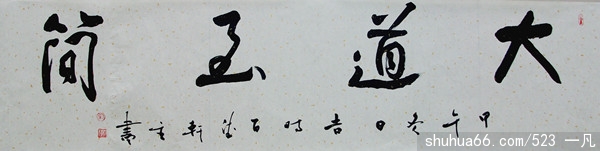 大道至简
甲午冬日吉时百德轩主書
shuhua66.com/523 一凡